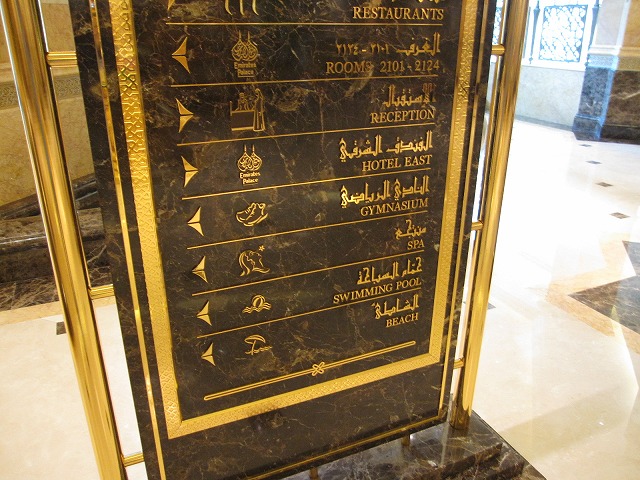 RESTAURANTS
Emirates
Palace
الغرف ٢١٠١ - ٢١٢٤
ROOMS 2101 - 2124
الإستقبال
RECEPTION
Emirates
Palace
الفندق الشرقي
HOTEL EAST
النادي الرياضي
GYMNASIUM
منتجع
SPA
حمّام السباحة
SWIMMING POOL
الشاطئ
BEACH